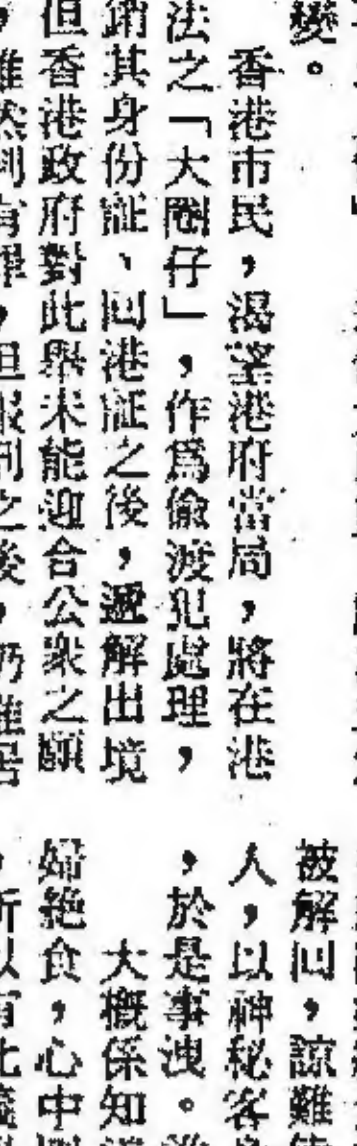 變。
香港市民，渴望港府當局，將在港
法之「大圈仔」，作爲偷渡犯處理，
銷其身份証、回港証之後，遞解出境
但香港政府對此舉未能迎合公衆之願
，雖然判有罪，但服刑之後，仍難居
被解回，諒難
人，以神秘客
，於是事洩。
大概係知
婦絕食，心中
，所以有此